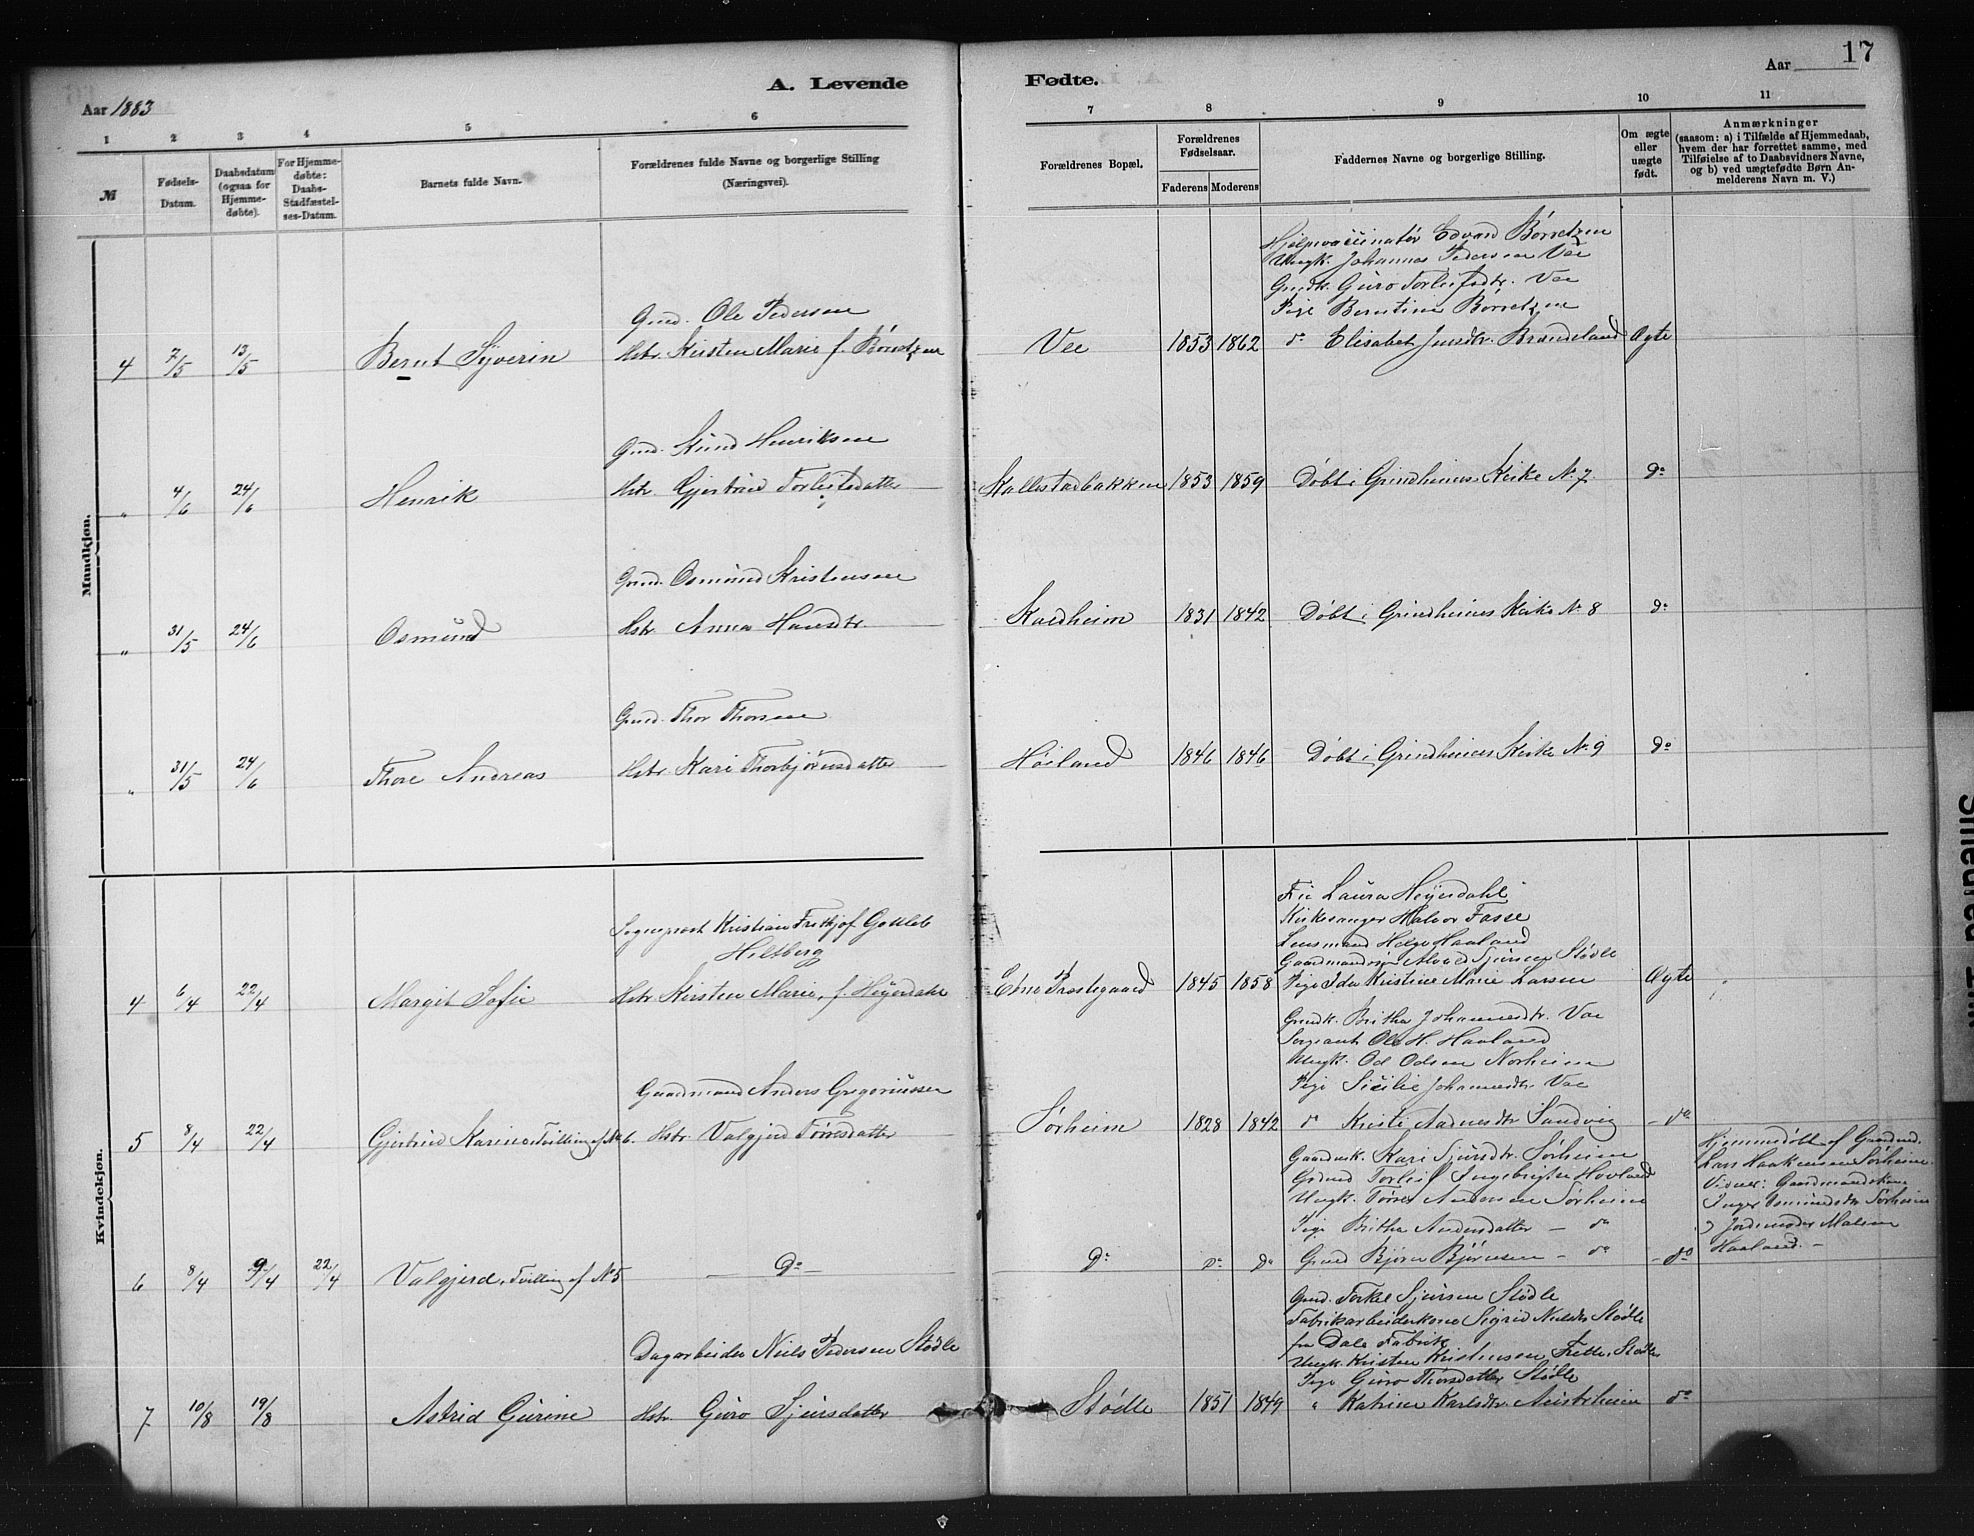 17
A. Levende Fødte.
Aar 1883
Aar
1 2 3 4 5 6 7 8 9 10 11
№
Fødsels-Datum.
Daabsdatum (ogsaa for Hjemme-døbte).
For Hjemme-døbte: Daabs-Stadfæstel-ses-Datum.
Barnets fulde Navn.
Forældrenes fulde Navne og borgerlige Stilling (Næringsvei).
Forældrenes Bopæl.
Forældrenes Fødselsaar.
Faderens Moderens
Faddernes Navne og borgerlige Stilling.
Om ægte eller uægte født.
Anmærkninger
(saasom: a) i Tilfælde af Hjemmedaab,
hvem der har forrettet samme, med
Tilføielse af to Daabsvidners Navne,
og b) ved uægtefødte Børn An-
melderens Navn m. V.)
Mandkjøn.
Hjelpevaccinatør Edvard Børretzen
Ungk. Johannes Pedersen Vae
Gmdk. Guro Torleifsdtr. Vae
Gmd. Ole Pedersen
Pige Berntine Børretzen
4 7/5 13/5 Bernt Syverin Hstr. Kirsten Marie f. Børretzen Vee 1853 1862 do Elisabet Jensdtr. Brandeland Ægte
Gmd. Knud Henriksen
" 4/6 24/6 Henrik Hstr. Gjertrud Torleifsdatter Kallestadbakken 1853 1859 Døbt i Grindheims Kirke No 7 do
Gmd. Osmund Kristensen
" 31/5 24/6 Osmund Hstr. Anna Hansdtr. Kaldheim 1831 1842 Døbt i Grindheims Kirke No 8 do
Gmd. Thor Thorsen
" 31/5 24/6 Thore Andreas Hstr. Kari Thorbjørnsdatter Høiland 1846 1846 Døbt i Grindheims Kirke No 9 do
Kvindekjøn.
Fru Laura Heyerdahl
Kirkesanger Halvor Fasse
Sogneprest Kristian Fritkjof Gottleb
Lensmand Helge Haaland
Hiltberg
Gaardmandssøn Alvald Sjursen Stødle
4 6/4 22/4 Margit Sofie Hstr. Kirsten Marie, f. Heyerdahl Etne Præstegaard 1845 1858 Pige Ida Kristine Marie Larsen Ægte
Gmdk. Britha Johannesdtr. Vae
Sergeant Ole H. Haaland
Ungk. Od Odsen Norheim
Gaardmand Anders Gregoriussen
Pige Sicilie Johannesdtr. Vae
5 8/4 22/4 Gjertrud Karine Tvilling af No 6. Hstr. Valgjerd Tørresdatter Sørheim 1828 1842 do Kirsti Aadnesdtr Sandvig do
Gaardmk. Kari Sjursdtr. Sørheim
Gdmd Torleif Ingebrigtsen Hovland
Ungk. Tørres Andersen Sørheim
Pige Britha Andersdatter do
Hjemmedøbt af Gaardmd.
Lars Haakensen Sørheim.
Vidner: Gaardmandskone
Inger Osmundsdtr Sørheim
& Jordemoder Malene
Haaland.
6 8/4 9/4 22/4 Valgjerd, Tvilling af No 5 Do Do Do Do Gmd Bjørn Bjørnsen do do
Gmd. Torkel Sjursen Stødle
Fabrikarbeiderkone Sigrid Nielsdtr Stødle
fra Dale Fabrik
Dagarbeider Niels Pedersen Stødle
Ungk. Kristen Kristensen Frette, Stødle
Pige Guro Thorsdatter Stødle
7 10/8 19/8 Astrid Gurine Hstr. Guro Sjursdatter Stødle 1851 1849 " Katrine Karlsdtr. Austrheim do